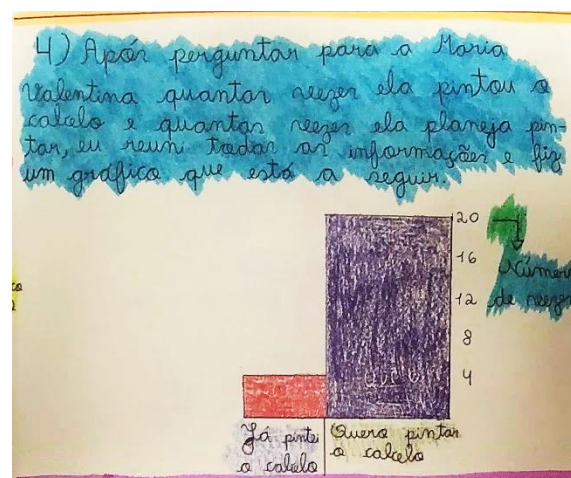 4) Após perguntar para a Maria
Valentina quantas vezes ela pintou o
cabelo e quantas vezes ela planeja pin-
tar, eu reuni todas as informações e fiz
um gráfico que está a seguir.
20
16
Número
de vezes
12
8
4
Já pintei
o cabelo
Quero pintar
o cabelo